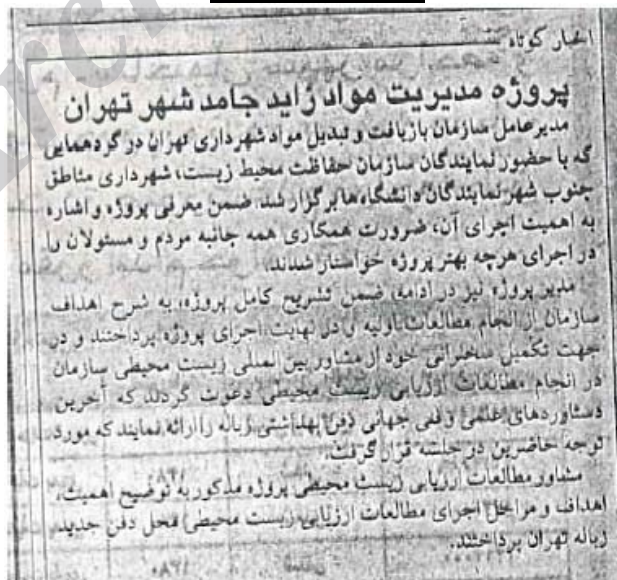 اخبار کوتاه
پروژه مدیریت مواد زاید جامد شهر تهران
مدیرعامل سازمان بازیافت و تبدیل مواد شهرداری تهران در گردهمایی
که با حضور نمایندگان سازمان حفاظت محیط زیست، شهرداری مناطق
جنوب شهر، نمایندگان دانشگاه‌ها برگزار شد، ضمن معرفی پروژه و اشاره
به اهمیت اجرای آن، ضرورت همکاری همه جانبه مردم و مسئولان را
در اجرای هرچه بهتر پروژه خواستار شدند.
مدیر پروژه نیز در ادامه، ضمن تشریح کامل پروژه، به شرح اهداف
سازمان از انجام مطالعات اولیه و در نهایت اجرای پروژه پرداختند و در
جهت تکمیل سخنرانی خود از مشاور بین المللی زیست محیطی سازمان
در انجام مطالعات ارزیابی زیست محیطی دعوت کردند که آخرین
دستاوردهای علمی و فنی جهانی دفن بهداشتی زباله را ارائه نمایند که مورد
توجه حاضرین در جلسه قرار گرفت.
مشاور مطالعات ارزیابی زیست محیطی پروژه مذکور به توضیح اهمیت،
اهداف و مراحل اجرای مطالعات ارزیابی زیست محیطی محل دفن جدید
زباله تهران پرداختند.